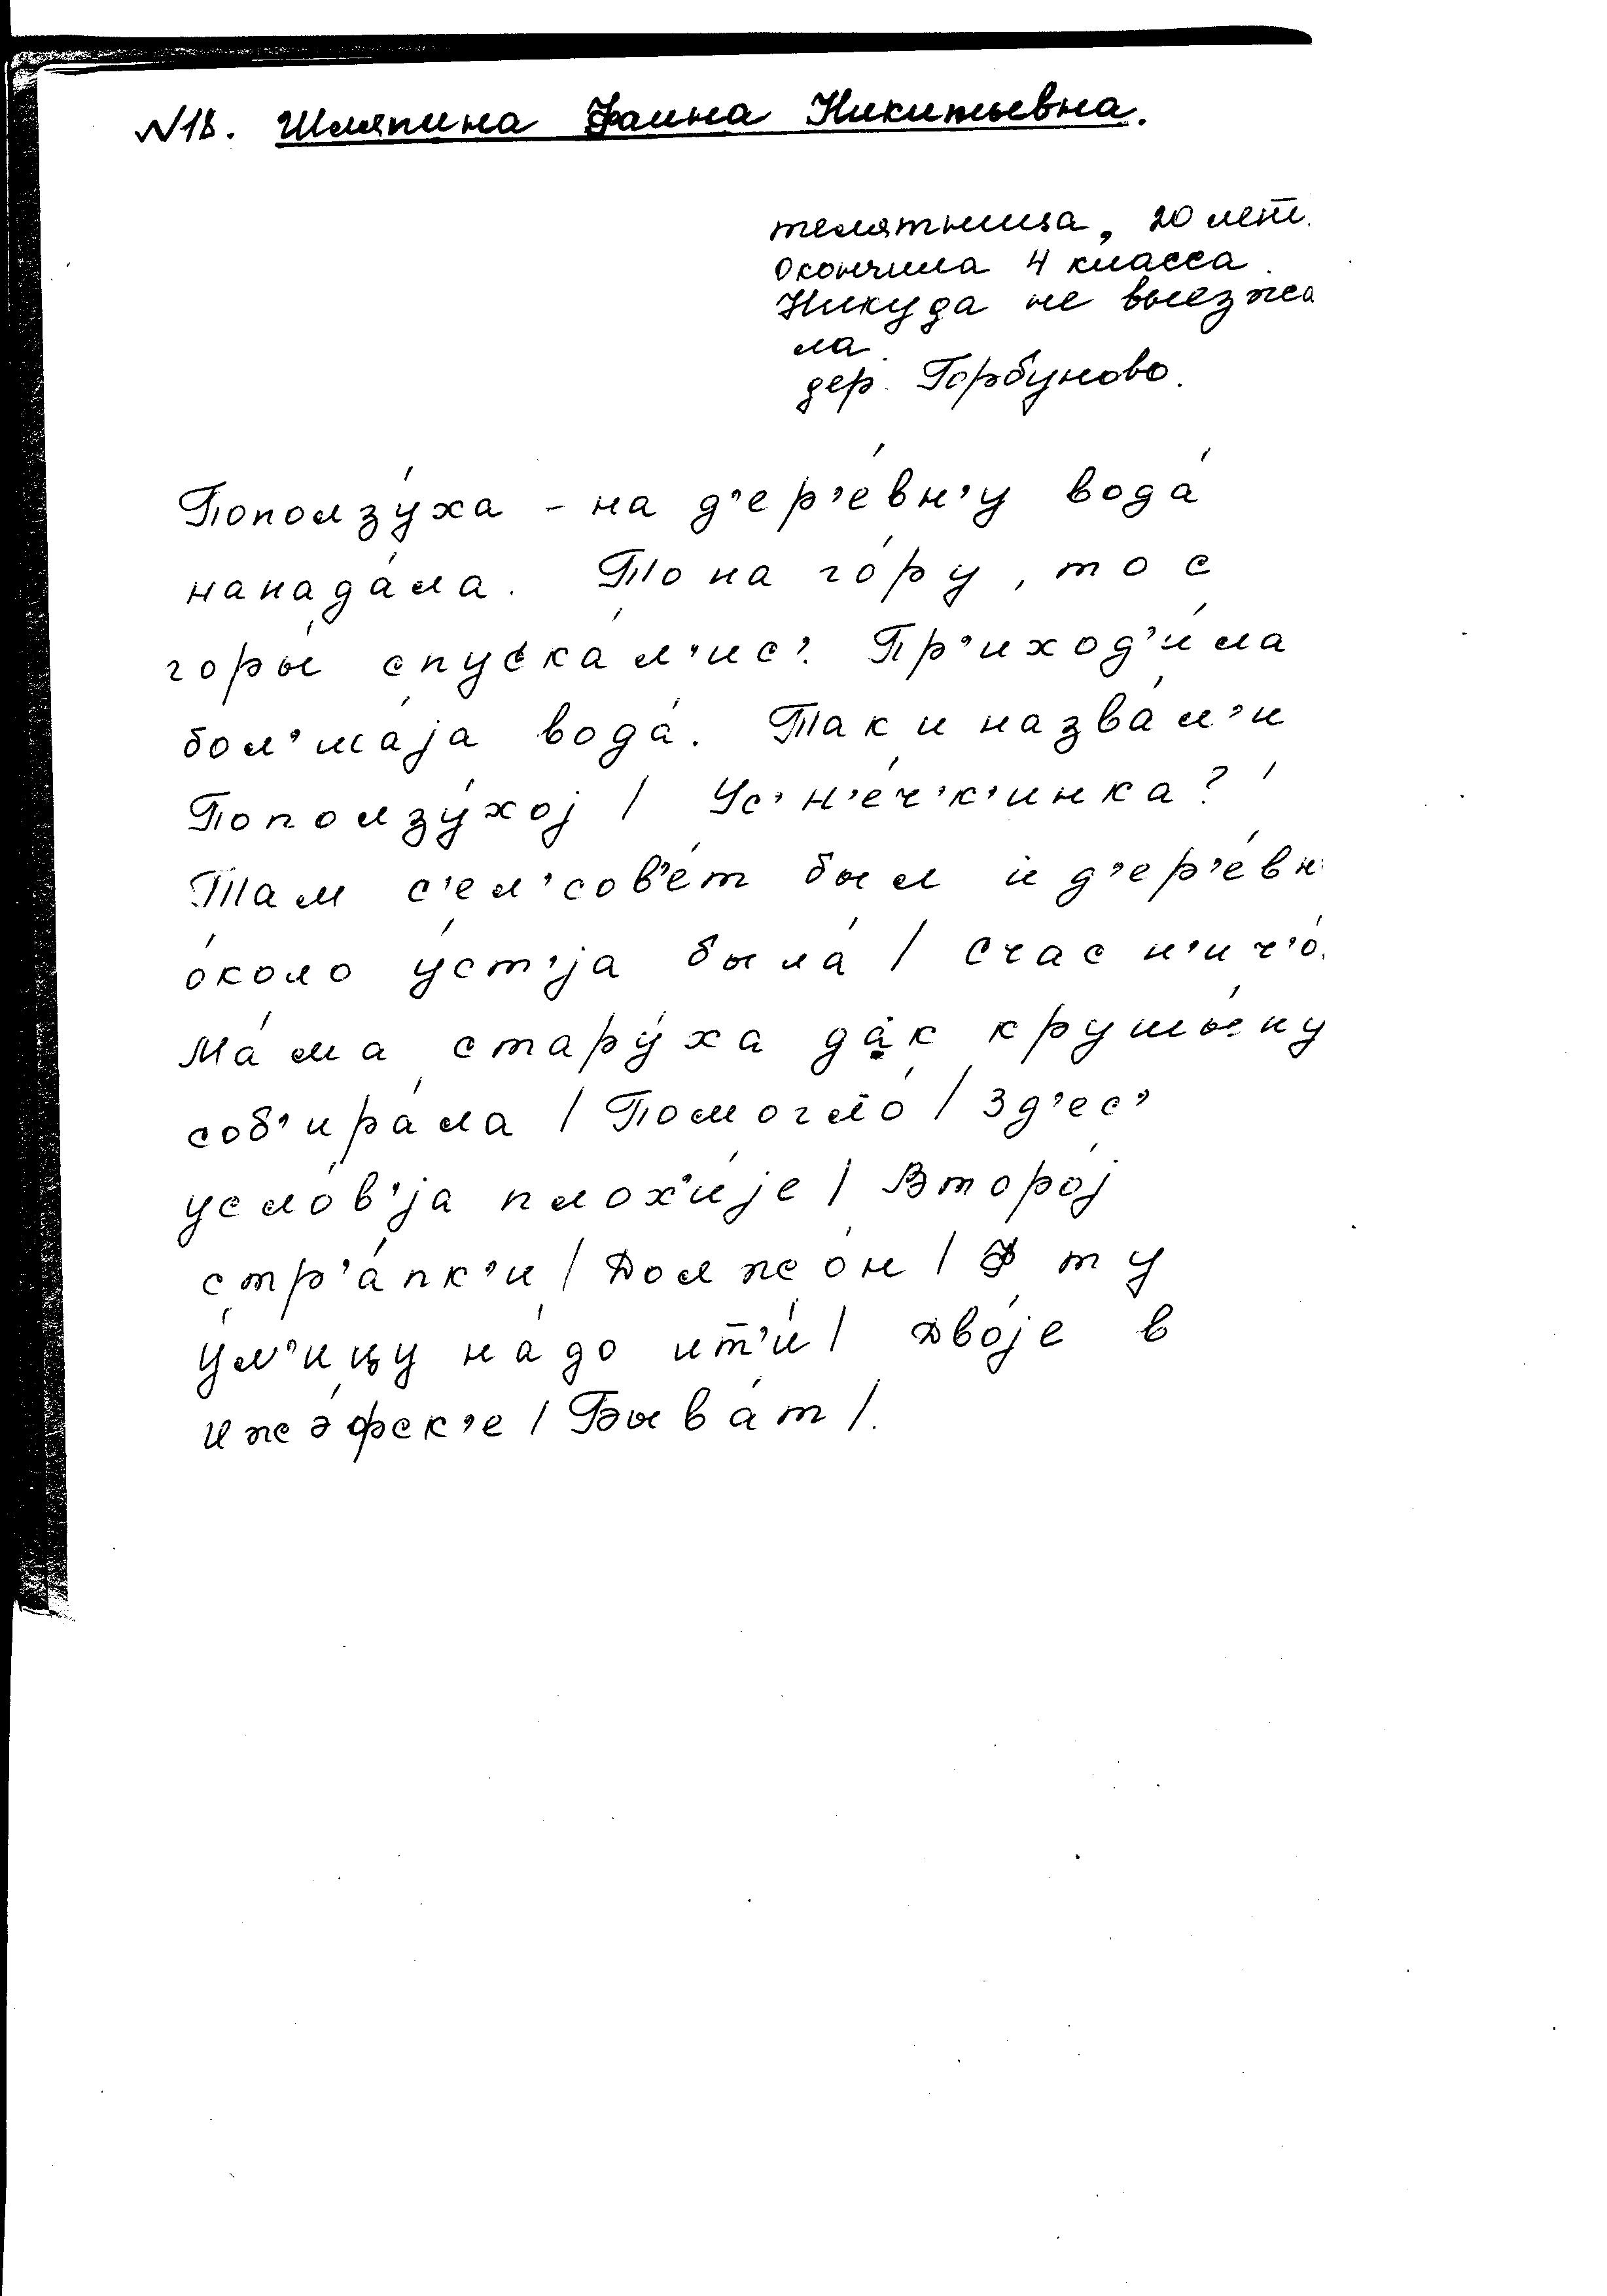 N18. Шляпина Фаина Никитьевна.
телятница, 20 лет.
Окончила 4 класса.
Никуда не выезжа
ла.
дер. Горбуново.
Поползу́ха - на д'ер'е́вн'у вода́
напада́ла. То на го́ру, то с
горы́ спуска́л'ис'. Пр'иход'и́ла
бол'ша́jа вода́. Так и назва́л'и
Поползу́хоj / Ус'н'е́ч'к'инка?
Там с'ел'сов'е́т был и д'ер'е́вн'
о́коло у́ст'jа была́ / Счас н'ич'о́.
Ма́ма стару́ха дак крушы́ну
соб'ира́ла / Помогло́ / Зд'ес'
усло́в'jа плох'и́jе / Второ́j
стр'а́пк'и / Должо́н / Ф ту
у́л'ицу на́до ит'и́ / Дво́jе в
Ижэ́фск'е / Быва́т /.